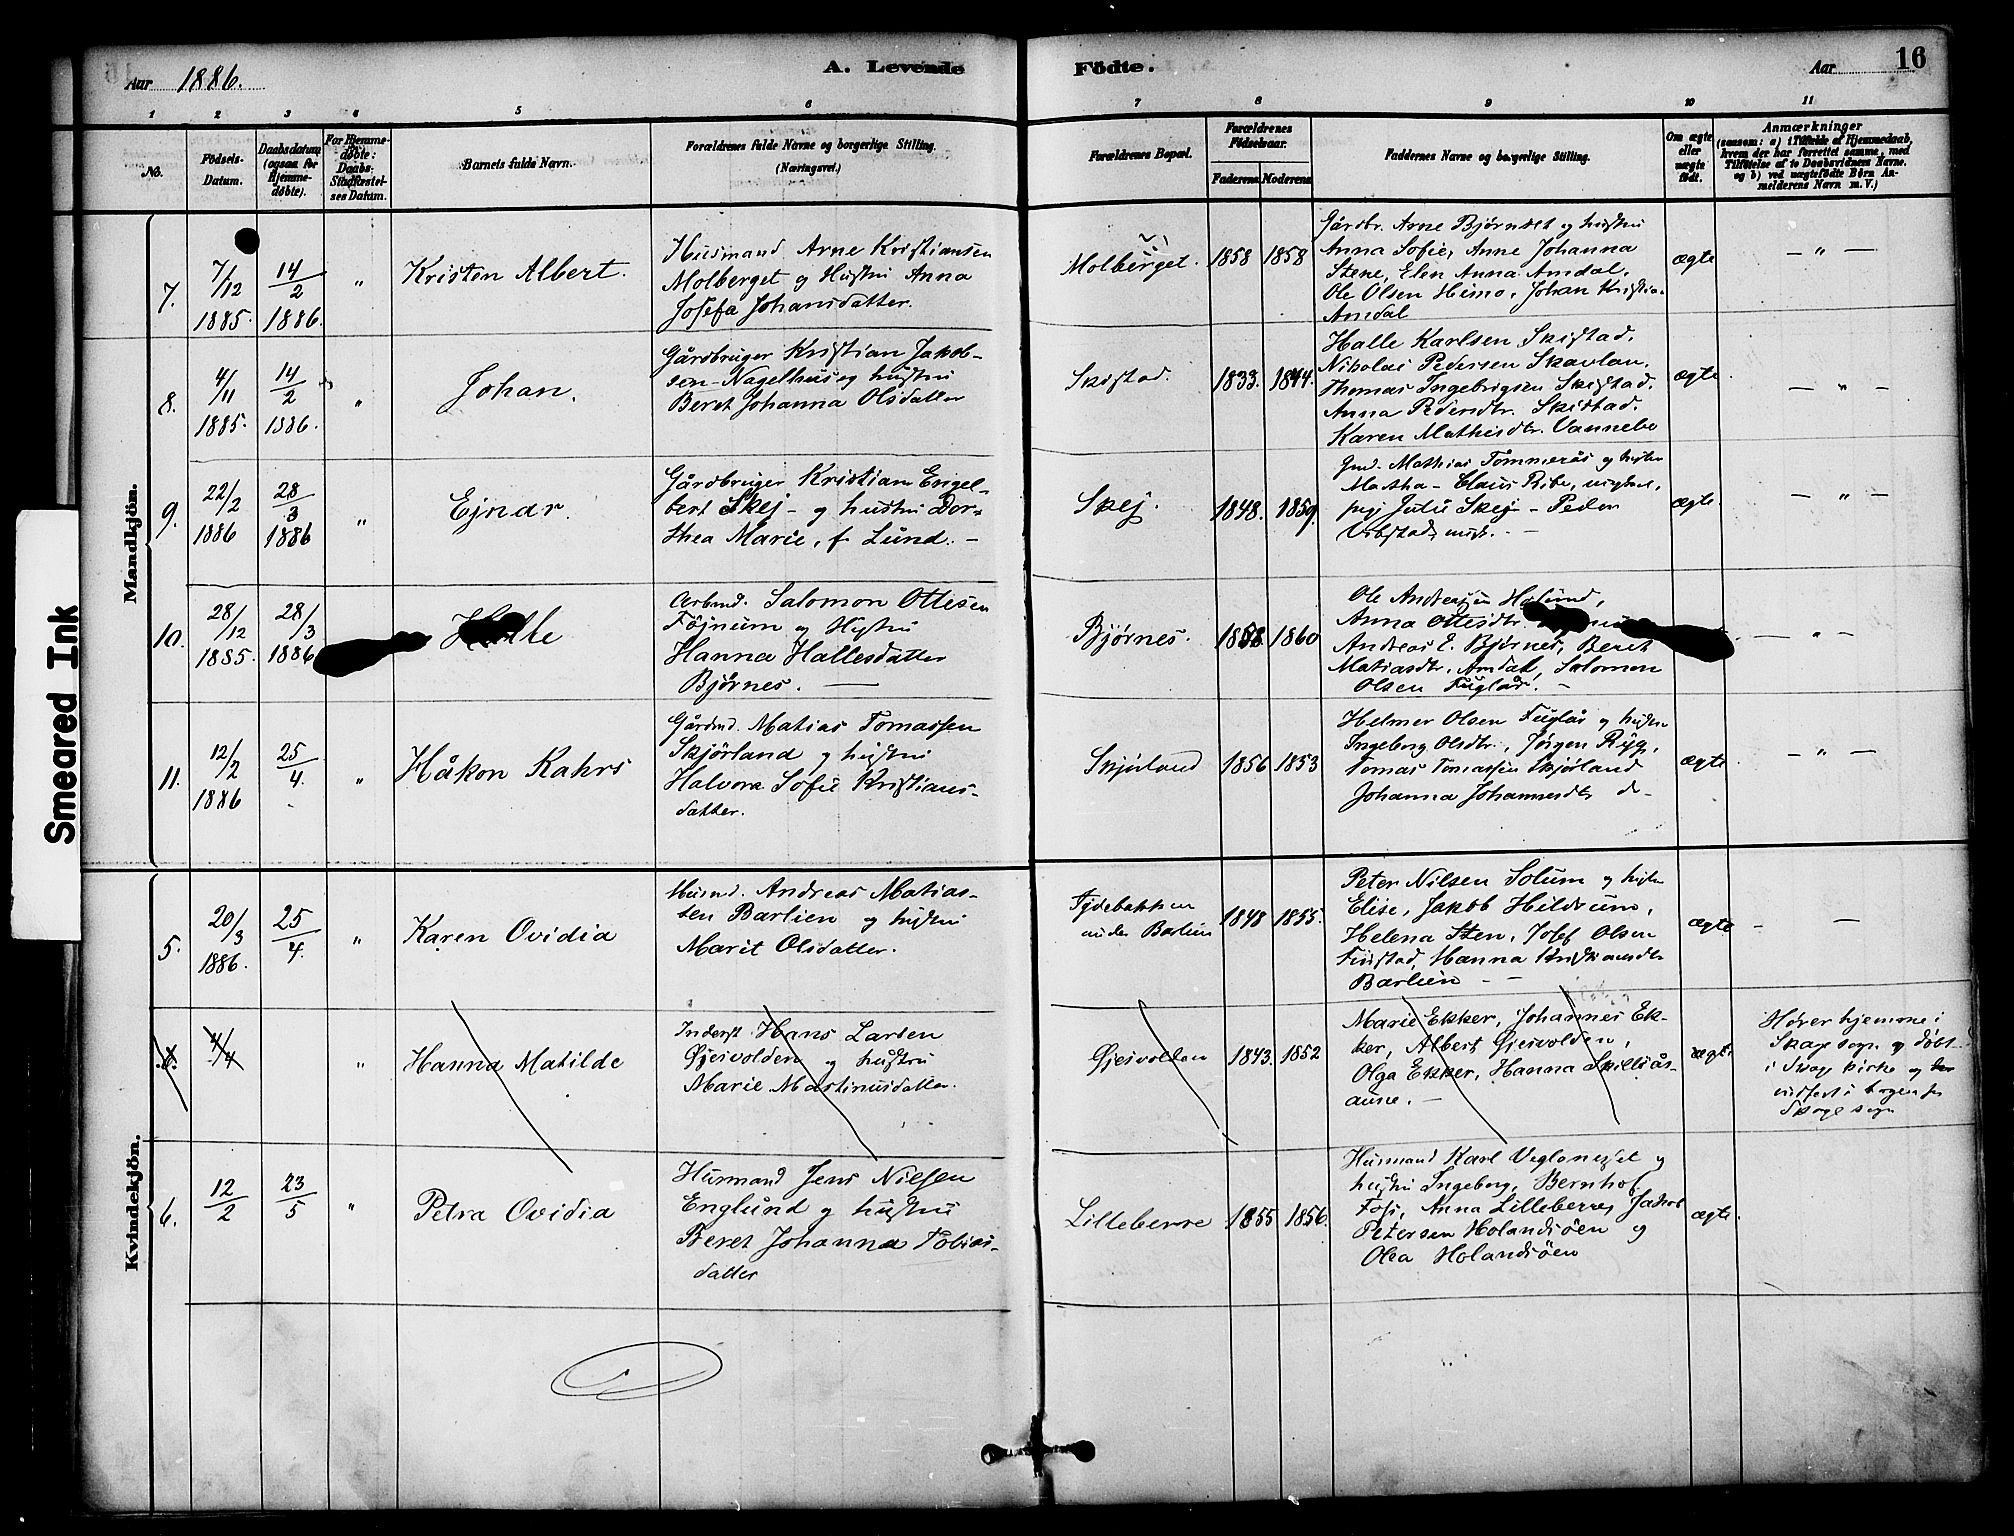 Smeared Ink
Aar 1886.
A. Levende
Födte.
Aar
16
1 2 3 4 5 6 7 8 9 10 11
No.
Födsels-Datum.
Daabsdatum (ogsaa for Hjemmedøbte).
For Hjemmedøbte: Daabs-Stadfæstelses Datum.
Barnets fulde Navn.
Forældrenes fulde Navne og borgerlige Stilling. (Næringsvei.)
Forældrenes Bopæl.
Forældrenes Födselsaar.
Faderens Moderens
Faddernes Navne og borgerlige Stilling.
Om ægte eller uægte født.
Anmærkninger
(saasom: a) i Tilfælde af Hjemmedaab,
hvem der har forrettet samme, med
Tilføielse af to Daabsvidners Navne.
og b) ved uægtefödte Börn An-
melderens Navn m. V.)
Mandkjön.
7.
7/12 1885.
14/2 1886.
"
Kristen Albert.
Husmand Arne Kristiansen
Molberget og Hustru Anna
Josefa Johansdatter.
Molberget.
1858 1858
Gårdbr. Arne Bjørnset og hustru
Anna Sofie, Anne Johanna
Stene, Elen Anna Amdal,
Ole Olsen Himo, Johan Kristia.
Amdal
ægte
— " —
8.
4/11 1885.
14/2 1886.
"
Johan.
Gårdbruger Kristian Jakob-
sen Nagelhus og hustru
Beret Johanna Olsdatter
Skistad.
1833. 1844.
Halle Karlsen Skistad.
Nikolai Pedersen Skavlan.
Thomas Ingebrigtsen Skistad.
Anna Pedersdtr. Skistad.
Karen Mathisdtr. Vannebo
ægte.
— " —
9.
22/2 1886
28/3 1886
"
Ejnar.
Gårdbruger Kristian Engel-
bert Skej - og hustru Dor-
thea Marie, f. Lund. —
Skej.
1848. 1859.
Mathias Tømmerås og hustru
Martha - Claus Ribe,
pige Julie Skej - Peder
Vibstad,
ægte.
— " —
10.
28/12 1885.
28/3 1886
Halle
Arbmd. Salomon Ottesen
Føjnum og Hustru
Hanna Hallesdatter
Bjørnes. —
Bjørnes.
1858 1860
Ole Andersen
Anna Ottesdtr.
Andreas E. Bjørnes, Beret
Matiasdtr. Amdal, Salomon
Olsen Fuglår. —
— " —
11.
12/2 1886
25/4.
"
Håkon Kahrs
Gårdmd. Matias Tomassen
Skjørland og hustru
Halvora Sofie Kristians-
datter.
Skjørland
1856 1853
Helmer Olsen Fuglår og hustru
Ingeborg Olsdtr., Jørgen Ryg,
Tomas Tomassen Skjørland
Johanna Johannesdtr do-
ægte
— " —
Kvindekjön.
5.
20/3 1886.
25/4.
"
Karen Ovidia
Husmd. Andreas Matias-
sen Barlien og hustru
Marit Olsdatter.
under Barlien
1848 1855.
Peter Nilsen Solum og hustru
Elise, Jakob Hildrum,
Helena Sten, Josef Olsen
Finstad, Hanna Kristiansdtr
Barlien —
ægte
—
6.
4/4
"
Hanna Matilde
Inderst Hans Larsen
Gjesvolden og hustru
Marie Martinusdatter.
Gjesvolden
1843. 1852
Marie Ekker, Johannes Ek-
ker, Albert Gjesvolden,
Olga Ekker, Hanna Skilliås-
aune. —
ægte
Hører hjemme i
Skage sogn og døbt
i Skage kirke og
indført i bogen for
Skage sogn
6.
12/2
23/5
"
Petra Ovidia
Husmand Jens Nilsen
Englund og hustru
Beret Johanna Tobias-
datter
Lilleberre
1855 1856.
Husmand Karl Veglaneset og
hustru Ingeborg, Bernhof
Foss, Anna Lilleberre, Jakob
Petersen Holandsøen og
Olea Holandsøen
ægte.